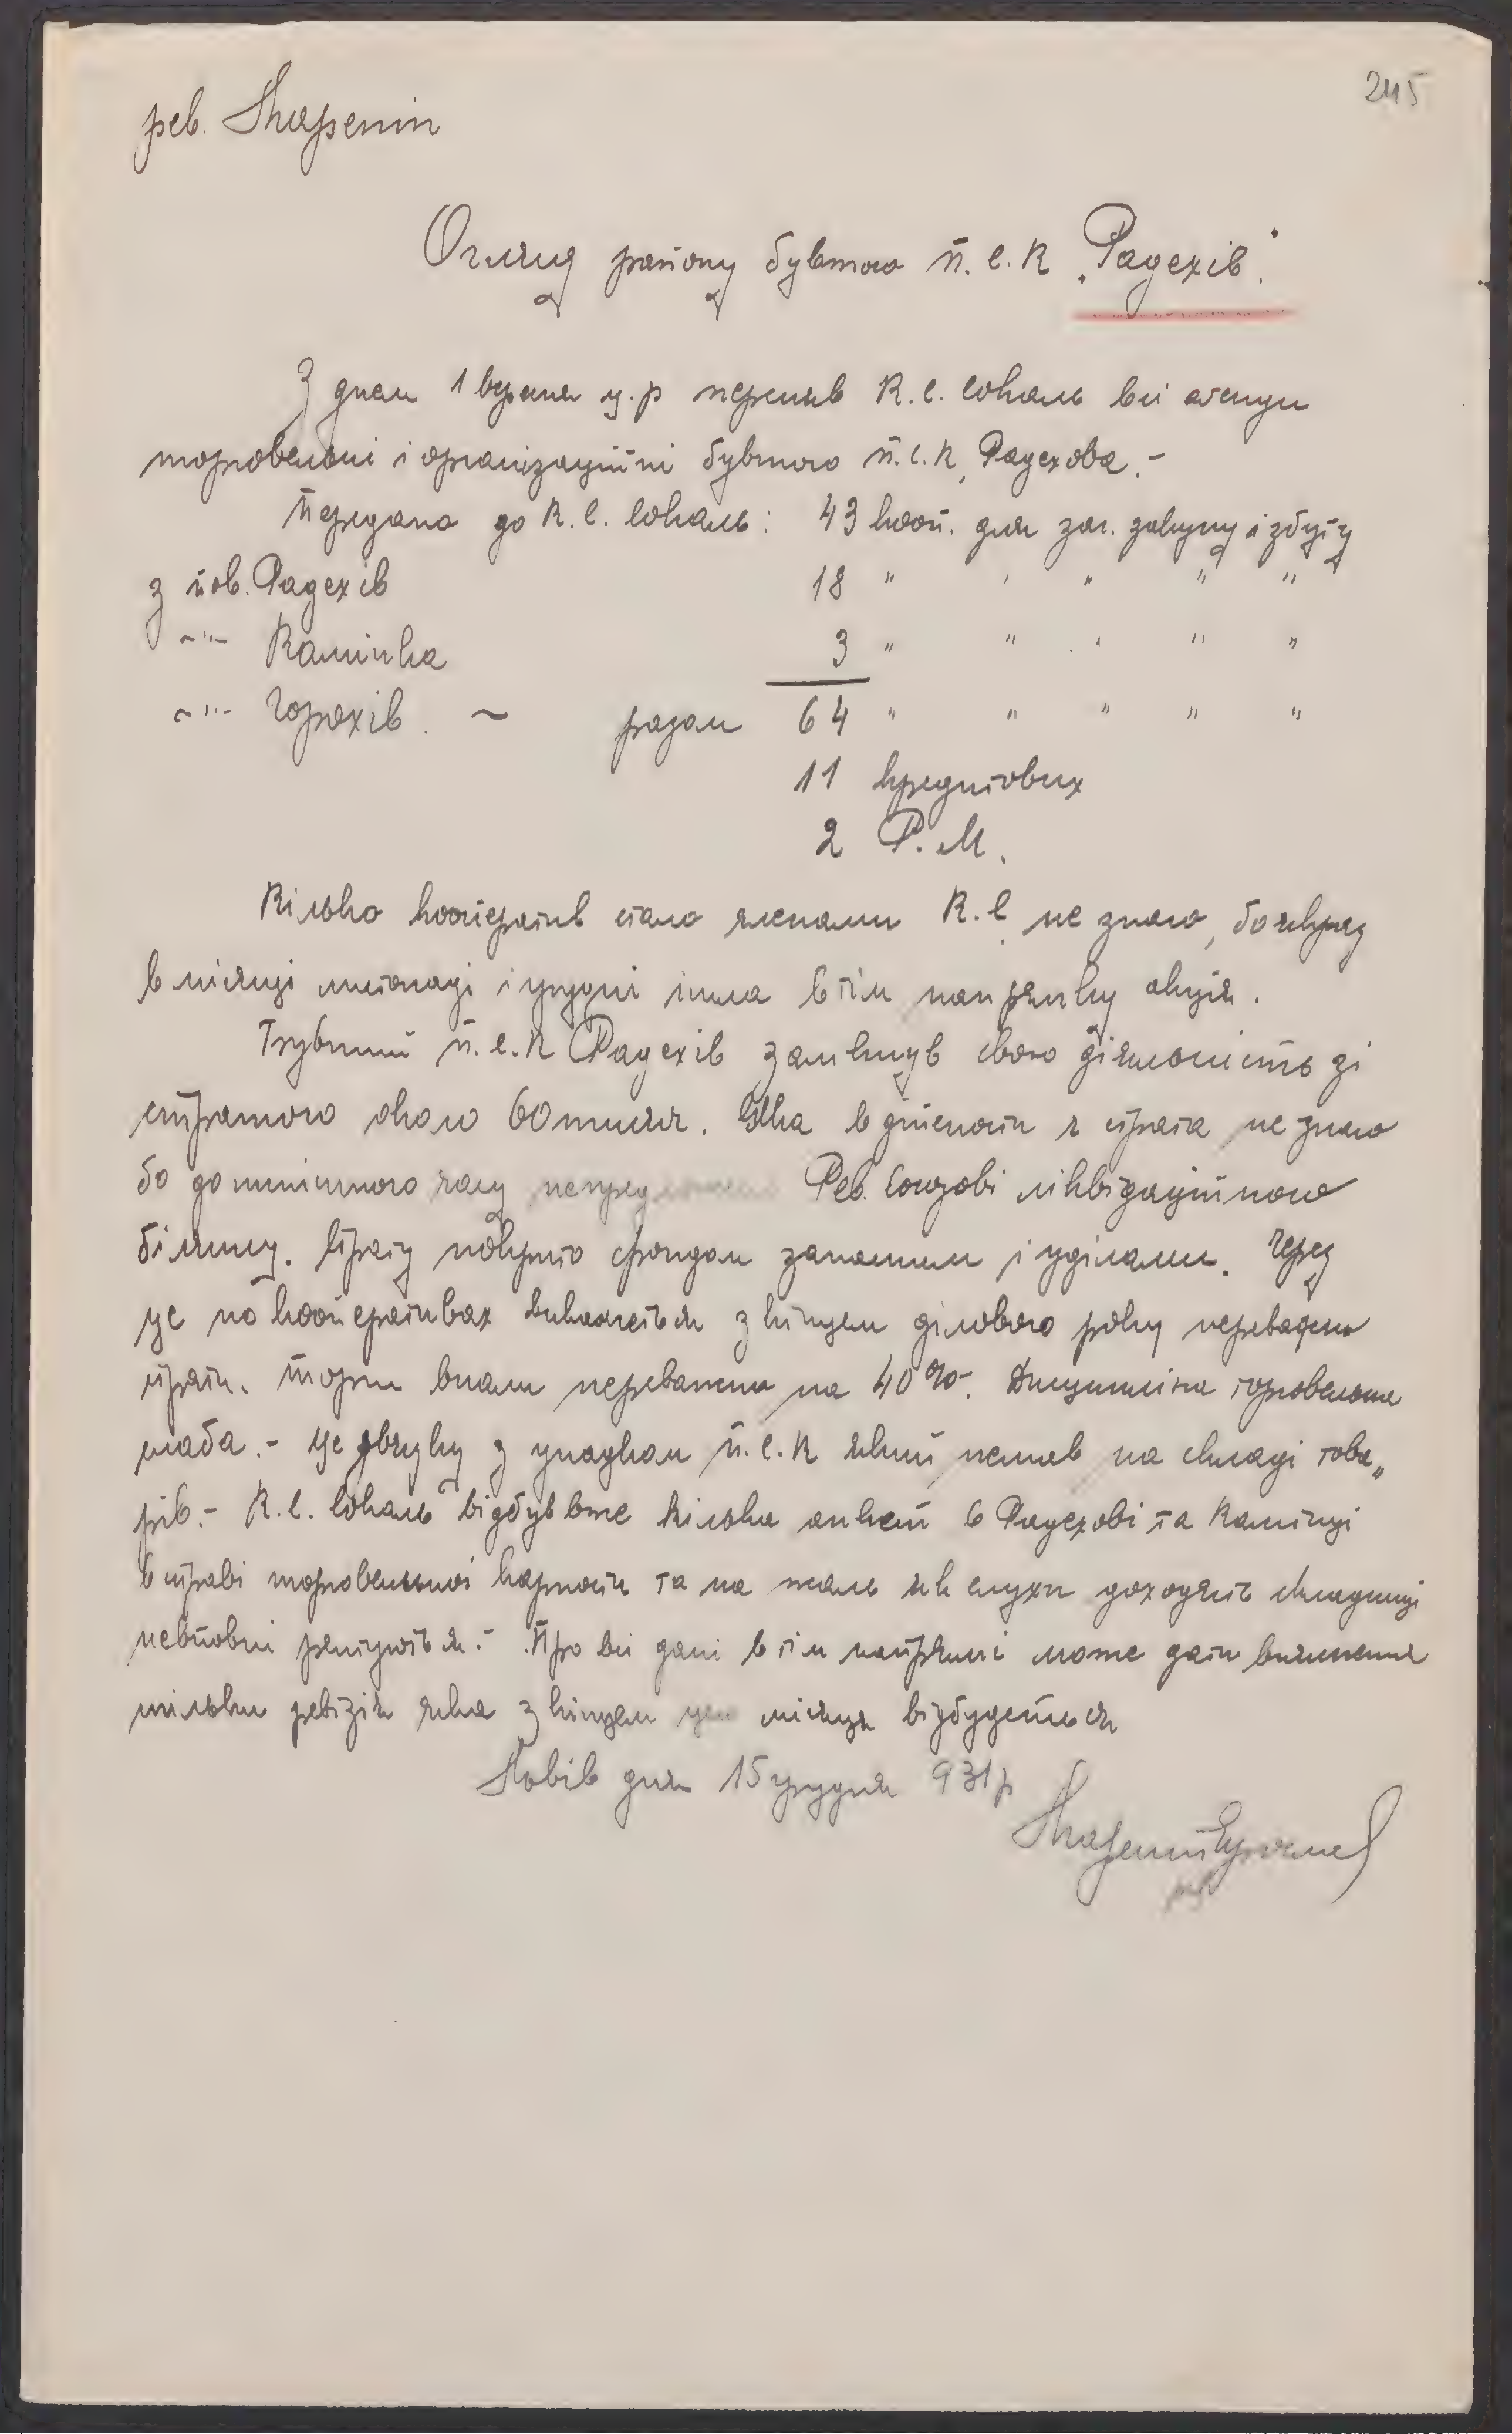 245
рев.
Огляд району бувшого П.С.К „Радехів".
З днем 1 вересня ц.р переняв К.С. Сокаль всі агенди
торговельні і організаційні бувшого П.С.К, Радехова.-
Передано до К.С. Сокаль: 43 кооп. для заг. закупу і збуту
з пов. Радехів 18 " " " " "
-"- Камінка 3 " " " " "
-"- Горохів. ~ разом 64 " " " " "
11 кредитових
2 Р.М.
Кілько кооператив стало членами К.С. не знаю, бо якраз
в місяці листопаді і грудні ішла в тім напрямку акція.
Бувший П.С.К Радехів замкнув свою діяльність зі
стратою около 60 тисяч. Яка в дійсности є страта не знаю
бо до нинішного часу Рев. Союзові ліквідаційного
білянсу. Страту покрито фондом запасним і уділами. Через
це по кооперативах викажеться з кінцем ділового року переважно
страти. Торги впали переважно на 40%. Дисципліна торговельна
слаба.- Це звязку з упадком П.С.К який немав на складі това„
рів.- К.С. Сокаль відбув вже кілька анкет в Радехові та Камінці
в справі торговельної карности та на жаль як слухи доходять складниці
невповні рентуються.- Про всі дані в тім напрямі може дати вияснення
тільки ревізія яка з кінцем місяця відбудеться
дня 15 грудня 931р